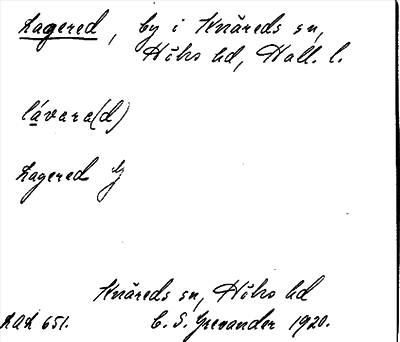 Lagered, by i Knäreds sn,
Höks hd, Hall. l.
lávara(d)
Lagered
Knäreds sn, Höks hd
LAL 651. C. S. Grevander 1920.